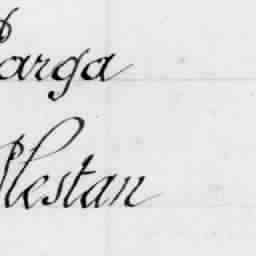 Parga
Plestan